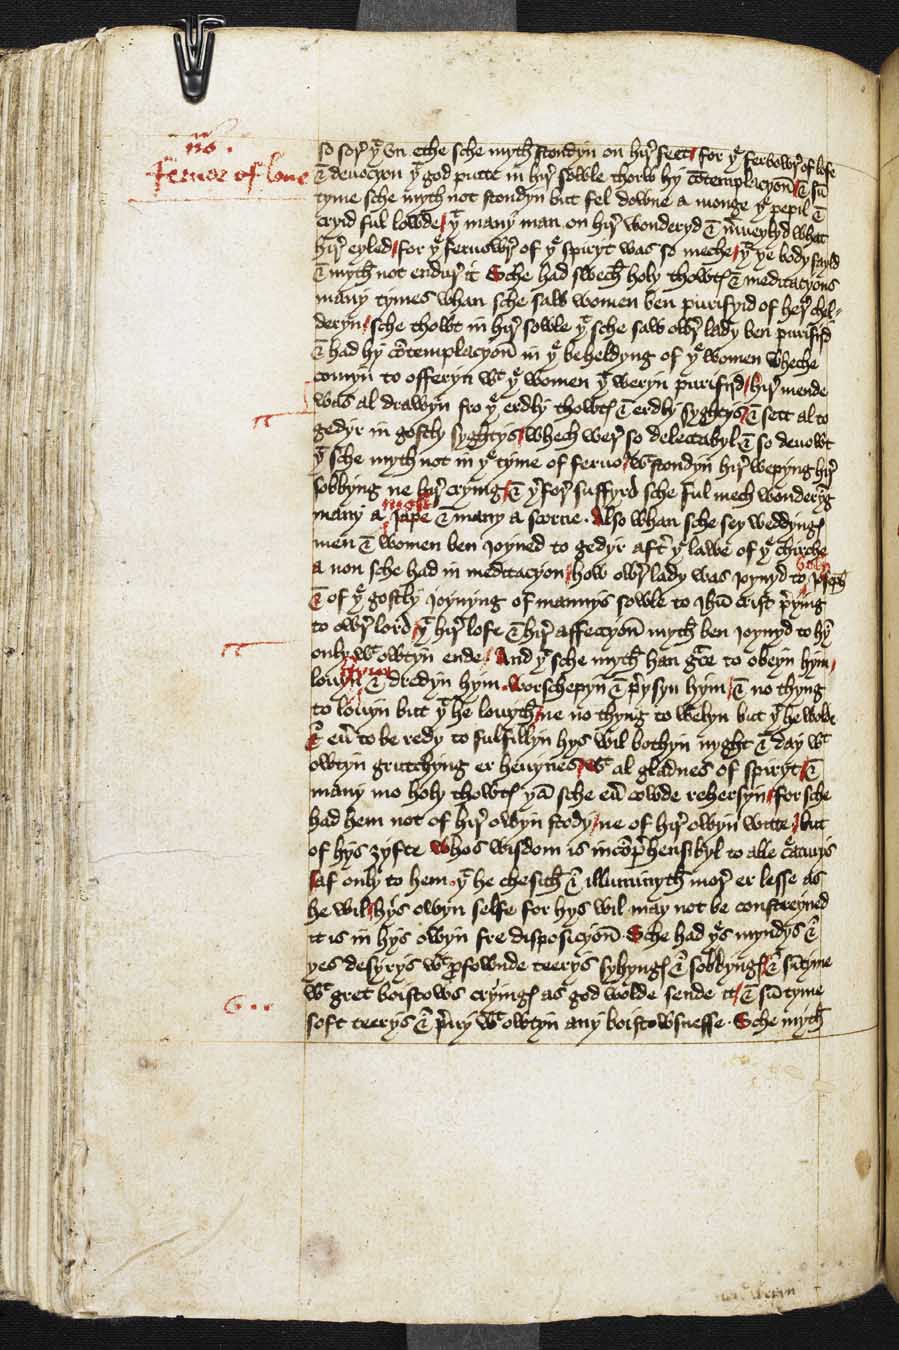 nō.
feruor of loue
so sor yͭ vn ethe sche myth stondyn on hir feet / for yͤ feruowr of lofe
& deuocyon yͭ god putte in hir sowle thorw hy contemplacyon / & sū
tyme sche myth not stondyn but fel downe a monge yͤ pepil &
cryid ful lowde / yͭ many man on hir wonderyd & merueylyd what
hir eyled / for yͤ feruowr of yͤ spiryt was so meche / yͭ ye body fayld
& myth not endur it Sche had swech holy thowtys & meditacyons
many tymes whan sche saw women ben purifyid of her chel-
deryn / sche thowt in hir sowle yͭ sche saw owr lady ben purifijd
& had hy contemplacyon in yͤ beheldyng of yͤ women wheche
comyn to offeryn wͭ yͤ women yͭ weryn purifijd / hir mende
was al drawyn fro yͤ erdly thowtys & erdly syghtys / & sett al to
gedyr in gostly syghtys / whech wer so delectabyl & so deuowt
yͭ sche myth not in yͤ tyme of feruor wͭstondyn hir wepyng hir
sobbyng ne hir crying / & yͬfor suffyrd sche ful mech wonderyng
many a jape & many a scorne . Also whan sche sey weddyngys
men & women ben joyned to gedyr aftyr yͤ lawe of yͤ chirche
a non sche had in meditacyon / how owr lady was joynyd to holy Joseph
& of yͤ gostly joynyng of mannys sowle to Jhū crist preying
to owr lord / yͭ hir lofe & hir affeccyon myth ben joynyd to hym
only wͭ owtyn ende . And yͭ sche myth han grace to obeyn hym /
louyn & dredyn hym . worschepyn & preysyn hym / & no thyng
to louyn but yͭ he louyth / ne no thyng to welyn but yͭ he wolde
& euyr to be redy to fulfillyn hys wil bothyn nyght & day wͭ
owtyn grutchyng er heuynes / wͭ al gladnes of spiryt / &
many mo holy thowtys yan sche euyr cowde rehersyn / for sche
had hem not of hir owyn stody / ne of hir owyn witte / but
of hys ȝyfte whos wisdom is incomprehensibyl to alle creaturys
saf only to hem . yͭ he chesith & illuminyth mor er lesse as
he wil / hys owyn selfe for hys wil may not be constreyned
it is in hys owyn fre disposicyon . Sche had yͤs myndys &
yes desyrys wͭ profownde teerys syhyngys & sobbyngys / & sū tyme
wͭ gret boistows cryingys as god wolde sende it / & sū tyme
soft teerys & preuy wͭ owtyn any boistowsnesse . Sche myth